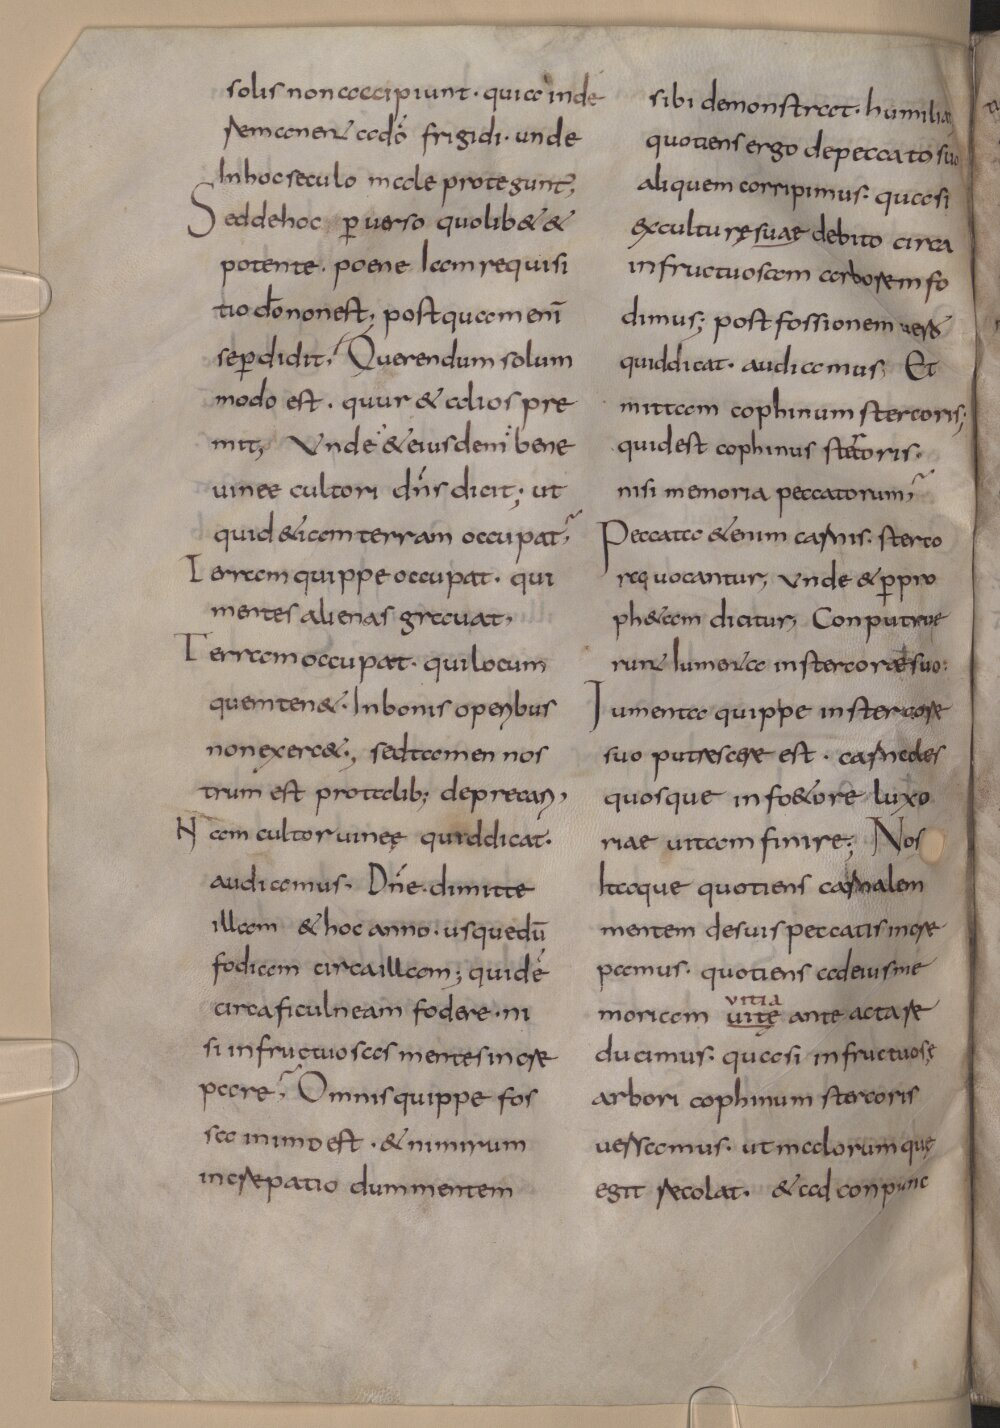 solis non accipiunt · quia inde
remanent a dō frigidi · unde
In hoc seculo male protegunt;
Sed de hoc peruerso quolib& &
potente · pene iam requisi
tio dō non est, postquam enī
se perdidit; Querendum solum
modo est · quur & alios pre
mit; Unde & eiusdem bene
uinee cultori dn̄s dicit; ut
quid &iam terram occupat;
Terram quippe occupat · qui
mentes alienas grauat,
Terram occupat · qui locum
quem ten& · In bonis operibus
non exerc&;, sed tamen nos
trum est pro talib; deprecari,
Nam cultor uineę quid dicat ·
audiamus · Dn̄e · dimitte
illam & hoc anno · usquedū
fodiam circa illam; quid ē
circa ficulneam fodere · ni
si infructuosas mentes incre
pare; Omnis quippe fos
sa in imo est · & nimirum
increpatio dum mentem
sibi demonstrat · humiliat
quotiens ergo de peccato suo
aliquem corripimus · quasi
ex culturę suae debito circa
infructuosam arborem fo
dimus; post fossionem uero
quid dicat · audiamus; Et
mittam cophinum stercoris;
quid est cophinus stercoris ·
nisi memoria peccatorum;
Peccata &enim carnis · sterco
ra uocantur; unde & per pro
ph&am dicitur; Conputrue
runt iumenta in stercore suo:
Iumenta quippe in stercore
suo putrescere est · carnales
quosque in fo&ore luxo
riae uitam finire; Nos
itaque quotiens carnalem
mentem de suis peccatis incre
pamus · quotiens ad eius me
moriam uitę ante acta re
vitia
ducimus · quasi infructuosę
arbori cophinum stercoris
uersamus · ut malorum quę
egit recolat · & ad conpunc